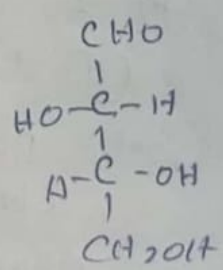 CHO
HO-C-H
H-C-OH
CH2OH